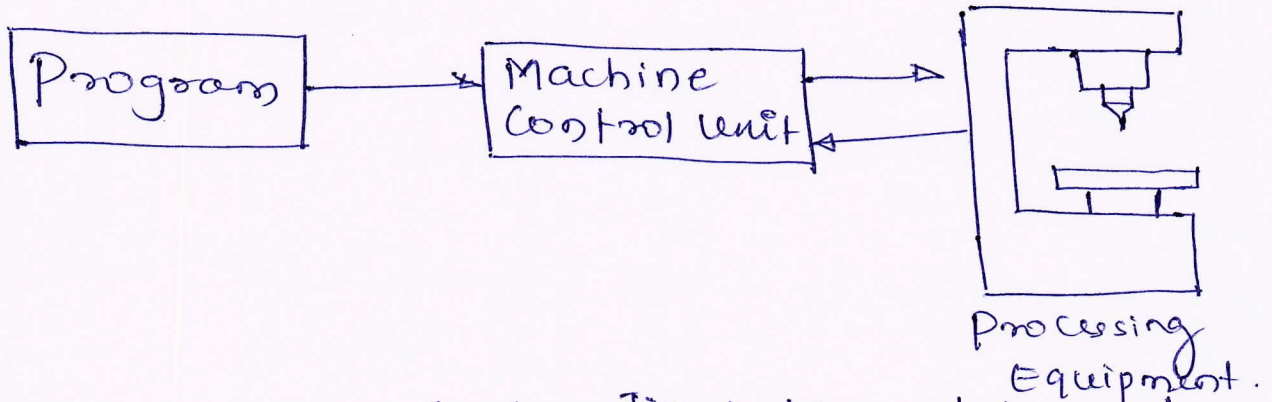 Program
Machine
Control unit
Processing
Equipment.